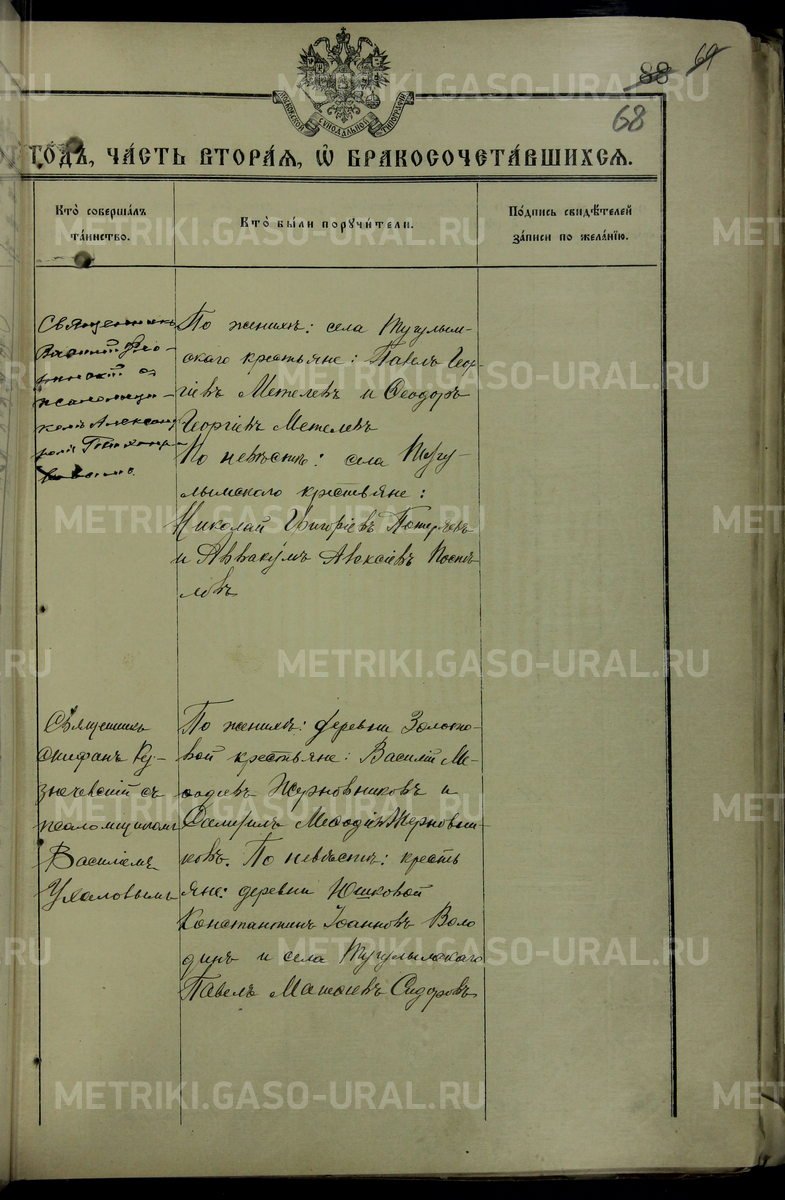 88
69
68
МОСКОВСКОЙ СѴНОДАЛЬНОЙ ТИПОГРАФІИ
ГО́ДЪ, ЧА́СТЬ ВТОРА́Ѧ, Ѡ҆ БРАКОСОЧЕТА́ВШИХСѦ.
Кто̀ соверша́лъ
та́инство.
Кто̀ бы́ли порꙋчи́тели.
По́дпись свидѣ́телей
за́писи по жела́нїю.
Священникъ
и
псаломщи-
комъ Александ
ромъ
По женихѣ: села Тугулым-
скаго крестьяне: Павелъ Геор-
гіевъ Метелевъ и Ѳеодоръ
Георгіевъ Метелевъ
По невѣстѣ: села Тугу-
лымскаго крестьяне:
Николай Григоріевъ
и Аввакумъ Алексіевъ Поспѣ
ловъ
Священникъ
Ку-
значевскій съ
псаломщикомъ
Василіемъ
Ухаловымъ
По женихѣ: деревни Золото-
вой крестьяне: Василій Ме-
ѳодіевъ Жерновниковъ и
Самуилъ Меѳодіевъ Жерновни-
ковъ. По невѣстѣ: кресть
яне: деревни Юшковой
Константинъ Іоанновъ Воло
динъ и села Тугулымскаго
Павелъ Матѳіевъ Сидоровъ
METRIKI.GASO-URAL.RU